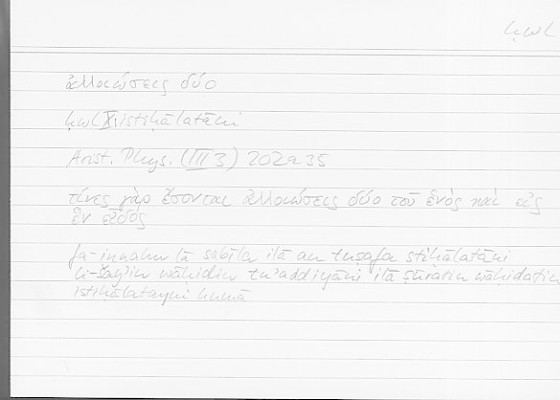 ḥwl
ἀλλοιώσεις δύο
ḥwl X istiḥālatāni
Arist. Phys. (III 3) 202a35
τίνες γὰρ ἔσονται ἀλλοιώσεις δύο τοῦ ἑνὸς καὶ εἰς
ἓν εἶδος
fa-innahu lā sabīla ilā an tuṣafa stiḥālatāni
li-šayʾin wāḥidin tuʾaddiyāni ilā ṣūratin wāḥidatin
istiḥālatayni humā